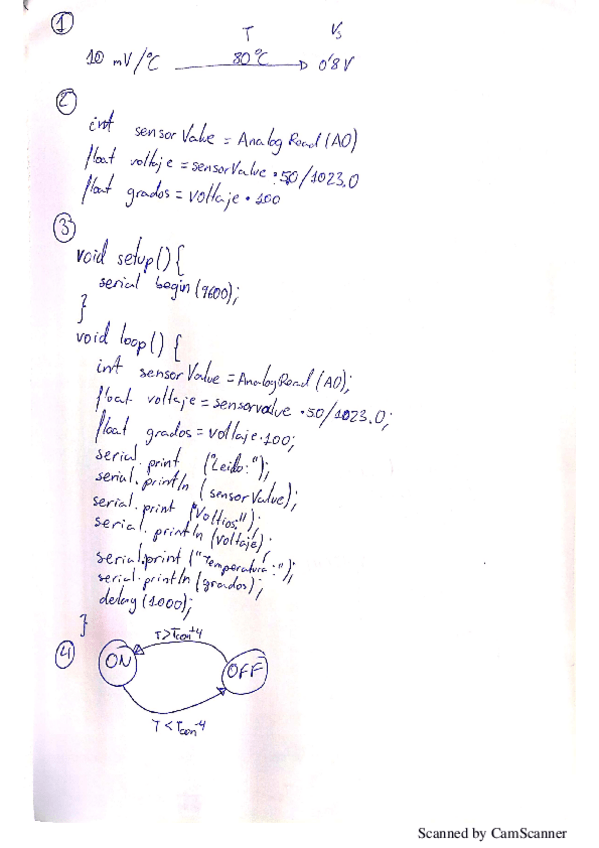 ①
T Vs
10 mV/°C 80°C 0'8V
②
int sensorValue = AnalogRead (A0)
float voltaje = sensorValue * 5.0/1023.0
float grados = voltaje * 100
③
void setup() {
serial begin (9600);
}
void loop() {
int sensorValue = AnalogRead (A0);
float voltaje = sensorvalue * 5.0/1023.0;
float grados = voltaje * 100;
serial. print ("Leido:");
serial. println (sensorValue);
serial. print ("Voltios:");
serial. println (voltaje);
serial.print ("Temperatura:");
serial.println (grados);
delay (1000);
}
④
T>Tcon+4
ON OFF
T<Tcon-4
Scanned by CamScanner